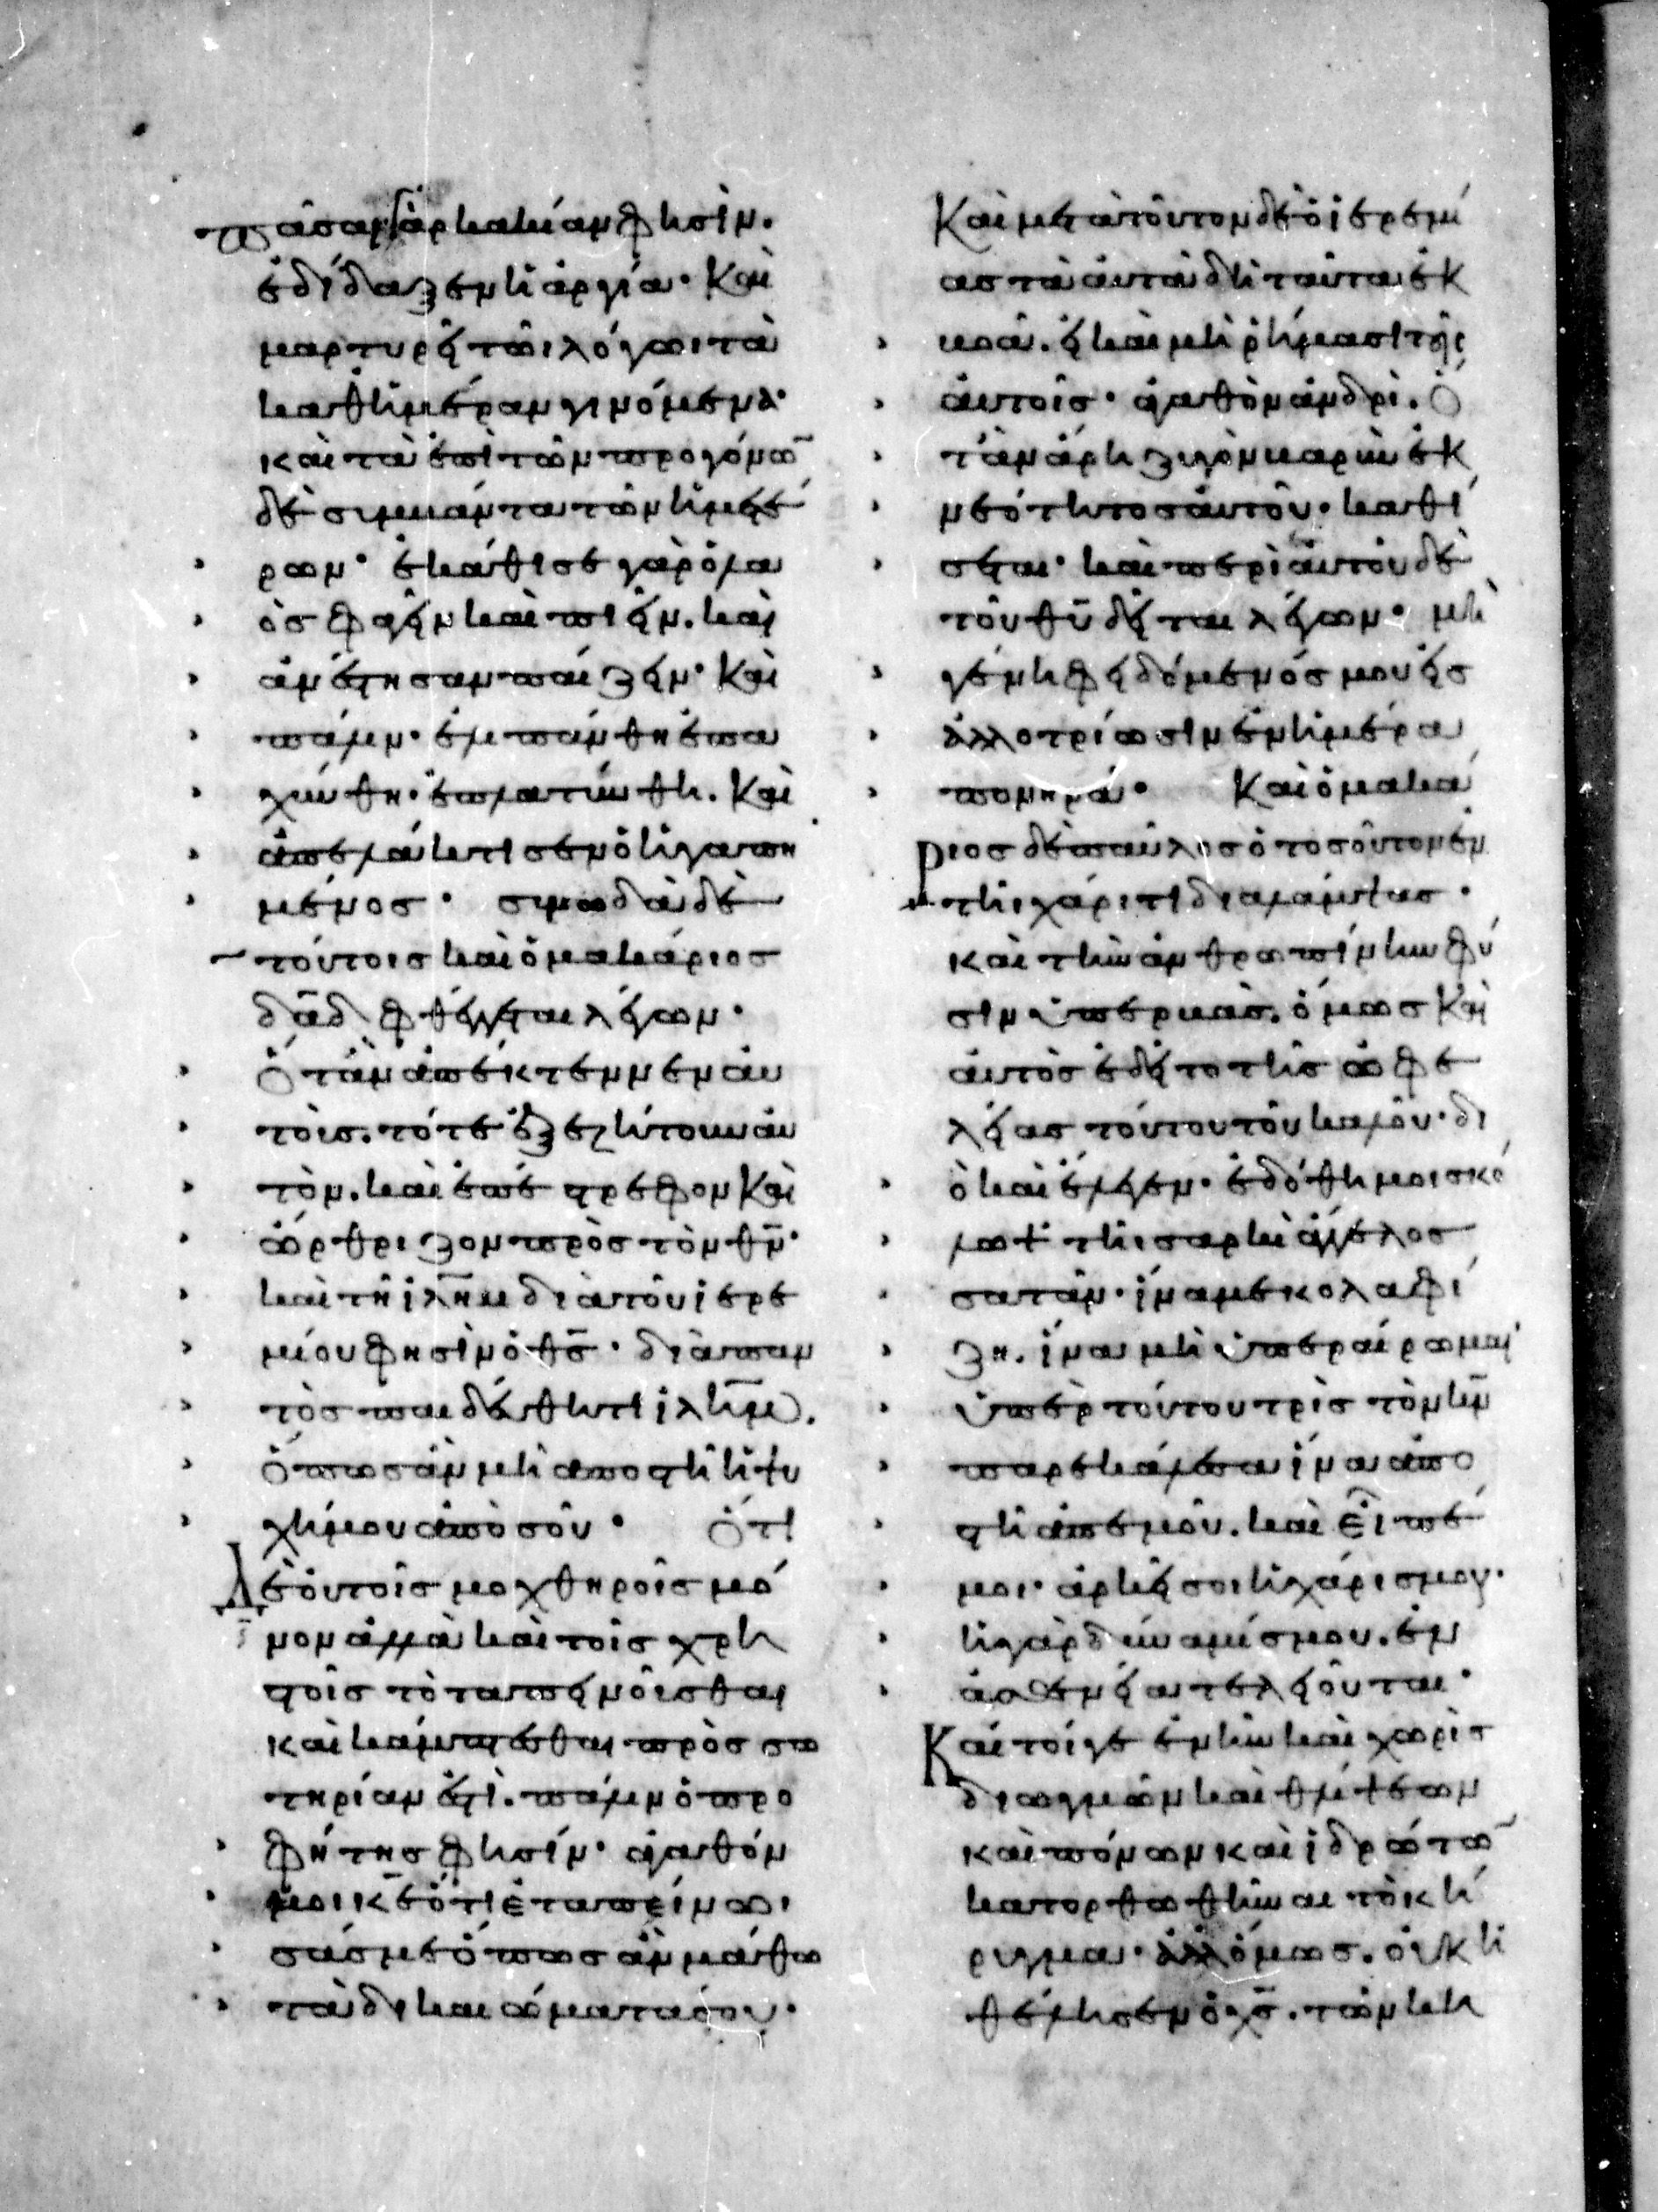 πᾶσαν γὰρ κακίαν φησὶν.
ἐδίδαξεν ἡ ἀργία· καὶ
μαρτυρεῖ τῶι λόγωι τὰ
καθημέραν γινόμενα·
καὶ τὰ ἐπὶ τῶν προγόνω̅
δὲ συμπάντα τῶν ἡμετέ
ρων· ἐκάθισε γὰρ ὁ λα
ὸς φαγεῖν καὶ πιεῖν. καὶ
ἀνέστησαν παίζειν· καὶ
πάλιν· ἐλιπάνθη ἐπα
χύνθη· ἐπλατύνθη. καὶ
ἀπελάκτισεν ὁ ἠγαπη
μένος· συνωδὰ δὲ
τούτοις καὶ ὁ μακάριος
δα̅δ φθέγγεται λέγων·
ὅταν ἀπέκτεννεν αὐ
τοὺς. τότε ἐξεζήτουν αὐ
τὸν. καὶ ἐπέστρεφον καὶ
ὤρθριζον πρὸς τὸν θν̅·
καὶ τῆ ιλη̅μ διὰ τοῦ ἱερε
μίου φησὶν ὁ θς̅· διὰ παν
τὸς παιδεύθητι ιλη̅μ.
ὅπως ἂν μὴ ἀποστῆ ἡ ψυ
χή μου ἀπὸ σοῦ· ὅτι
δὲ οὐ τοῖς μοχθηροῖς μό
νον ἀλλὰ καὶ τοῖς χρη
στοῖς τὸ ταπεινοῦσθαι
καὶ κάμπτεσθαι πρὸς σω
τηρίαν ἐστὶ. πάλιν ὁ προ
φήτης φησίν· ἀγαθόν
μοι κε̅ ὅτι ἐταπείνω
σάς με ὅπως ἂν μάθω
τὰ δικαιώματά σου·
καὶ μετὰ τοῦτον δὲ ὁ ἱερεμί
ας τὰ αὐτὰ δὴ ταῦτα ἐκ
βοᾶ. εἰ καὶ μὴ ῥήμασι τοῖς
αὐτοῖς· ἀγαθὸν ἀνδρὶ. ὅ
ταν ἄρη ζυγὸν βαρὺν ἐκ
νεότητος αὐτοῦ· καθί
σεται· καὶ περὶ αὐτοῦ δὲ
τοῦ θυ̅ δεῖται λέγων· μὴ
γένη φειδόμενός μου εἰς
ἀλλοτρίωσιν ἐν ἡμέρα
πονηρά· καὶ ὁ μακά
ριος δὲ παῦλος ὁ τοσοῦτον ἐν
τῆι χάριτι διαλάμψας·
καὶ τὴν ἀνθρωπίνην φύ
σιν ὑπερβὰς. ὅμως καὶ
αὐτὸς ἐδεῖτο τῆς ὠφε
λείας τούτου τοῦ καλοῦ· δι
ὸ καὶ ἔλεγεν· ἐδόθη μοι σκό
λοψ τῆι σαρκὶ ἄγγελος
σατὰν· ἵνα με κολαφί
ζη. ἵνα μὴ ὑπεραίρωμαι·
ὑπὲρ τούτου τρὶς τὸν κν̅
παρεκάλεσα ἵνα ἀπο
στῆ ἀπ' ἐμοῦ. καὶ εἶπέ
μοι· ἀρκεῖ σοι ἡ χάρις μου·
ἡ γὰρ δύναμίς μου. ἐν
ἀσθενεία τελειοῦται·
Καίτοίγε ἐνῆν καὶ χωρὶς
διωγμῶν καὶ θλίψεων
καὶ πόνων καὶ ἱδρώτω̅
κατορθωθῆναι τὸ κή
ρυγμα· ἀλλ' ὅμως. οὐκ ἠ
θέλησεν ὁ χς̅. τῶν κη